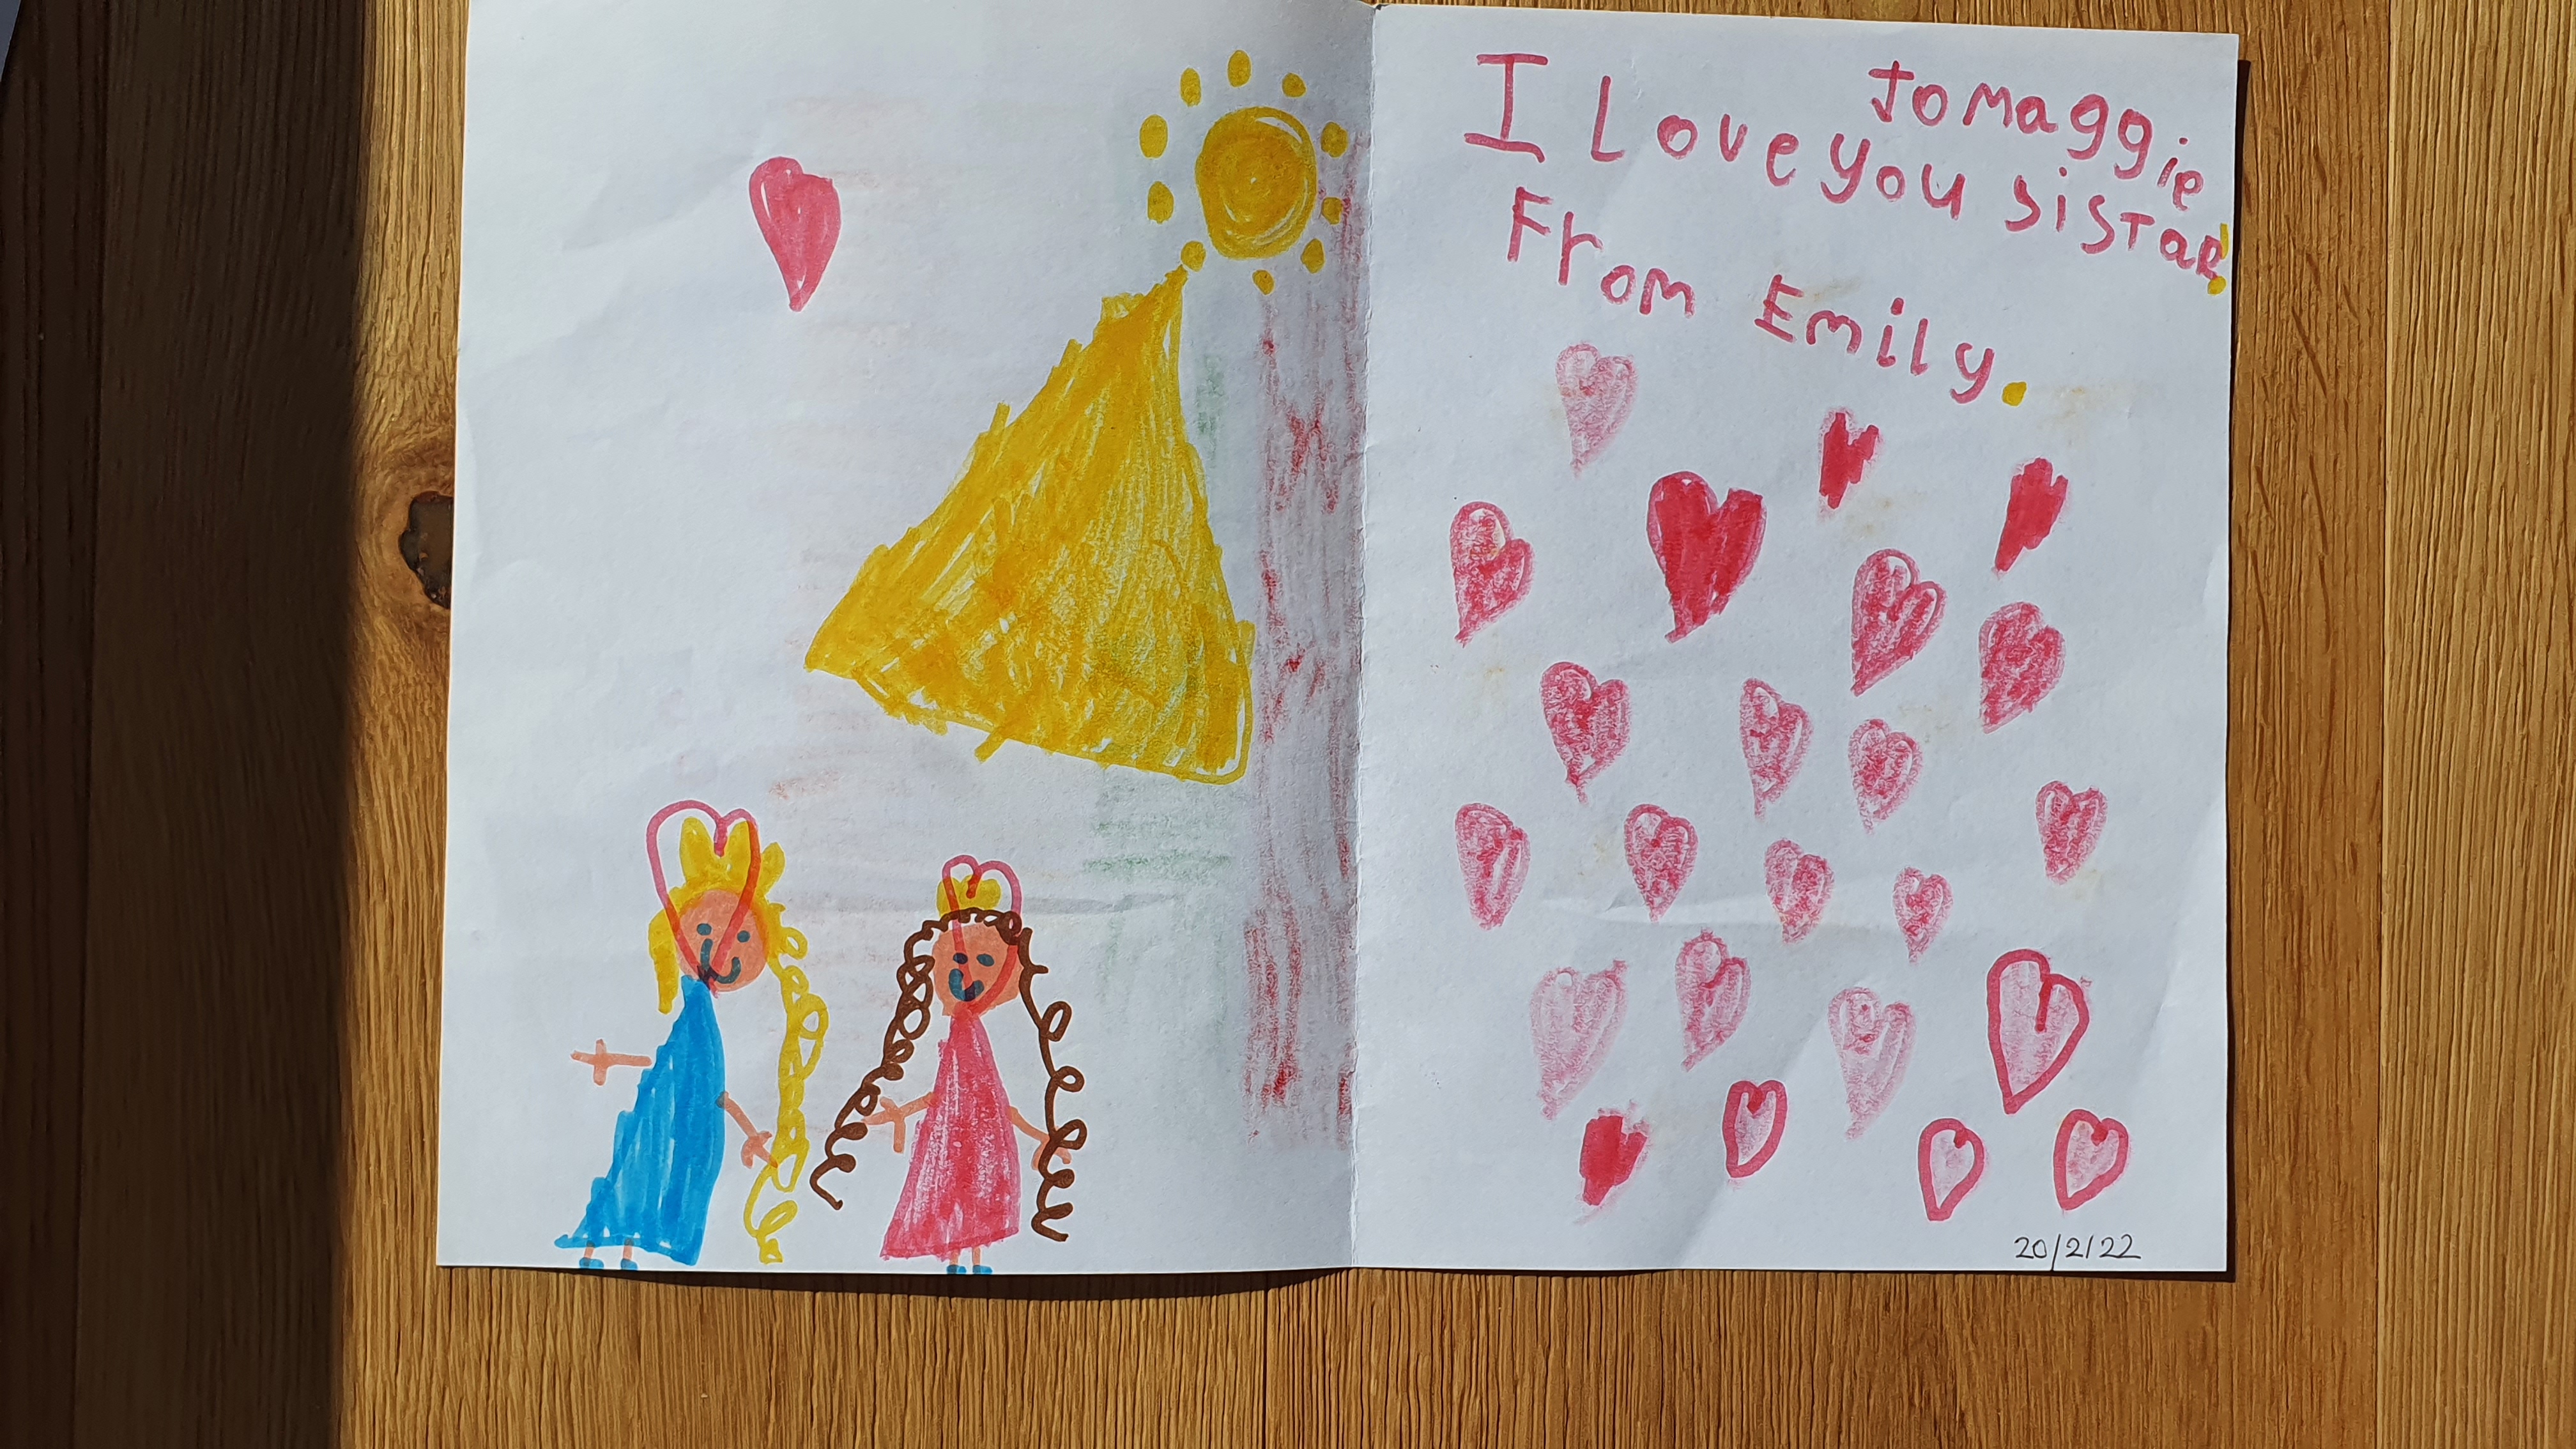 To Maggie
I Love you sistar!
From Emily.
20/2/22